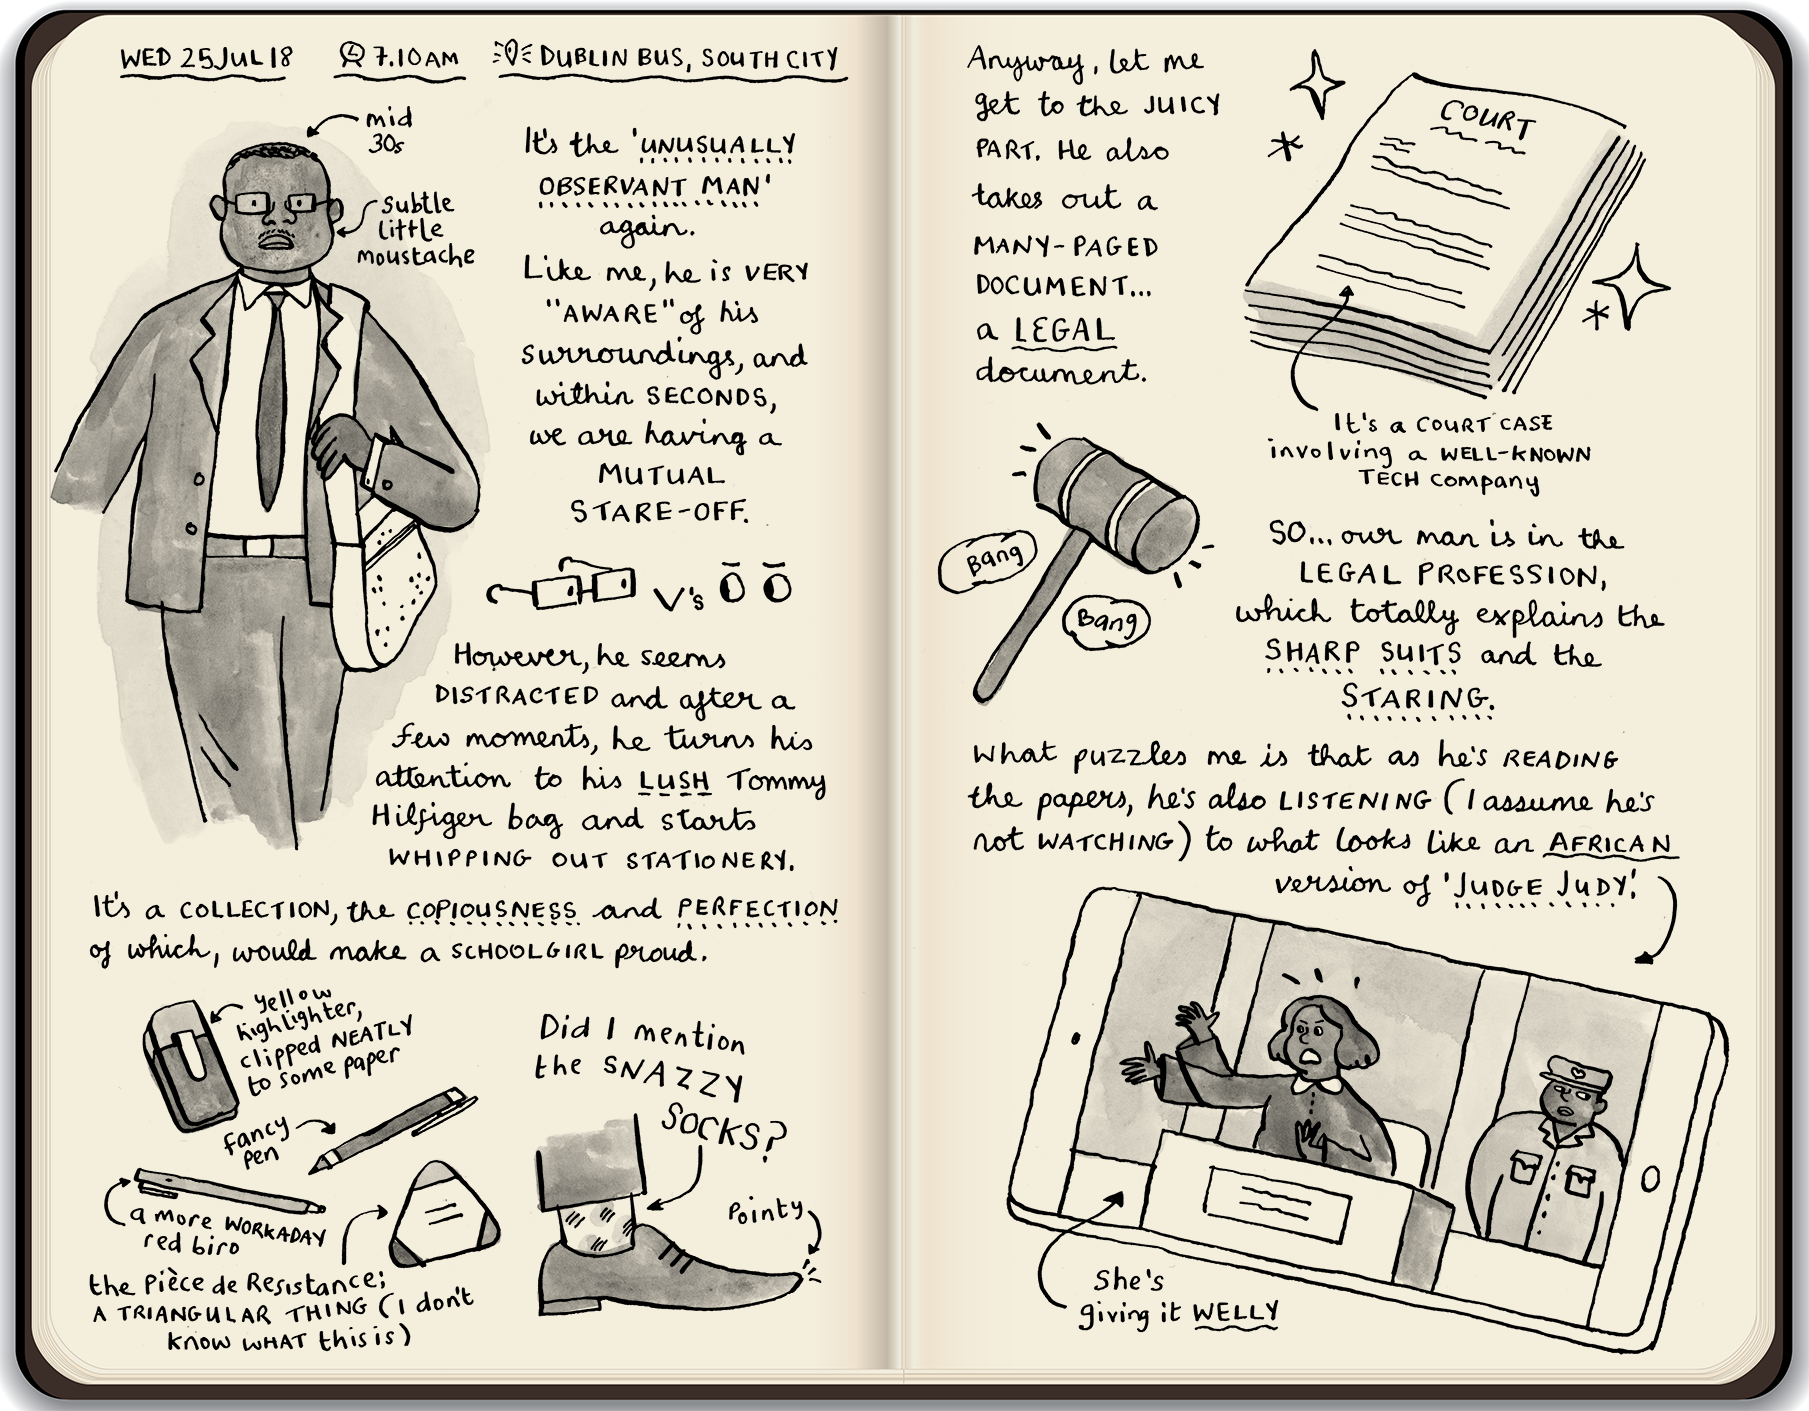 WED 25 JUL 18
7.10AM
DUBLIN BUS, SOUTH CITY
mid
30s
subtle
little
moustache
It's the 'UNUSUALLY
OBSERVANT MAN'
again.
Like me, he is VERY
"AWARE" of his
surroundings, and
within SECONDS,
we are having a
MUTUAL
STARE-OFF.
V's
However, he seems
DISTRACTED and after a
few moments, he turns his
attention to his LUSH Tommy
Hilfiger bag and starts
WHIPPING OUT STATIONERY.
It's a COLLECTION, the COPIOUSNESS and PERFECTION
of which, would make a SCHOOLGIRL proud.
yellow
highlighter,
clipped NEATLY
to some paper
fancy
pen
a more WORKADAY
red biro
the Pièce de Resistance;
A TRIANGULAR THING (I don't
know WHAT this is)
Did I mention
the SNAZZY
SOCKS?
Pointy
Anyway, let me
get to the JUICY
PART. He also
takes out a
MANY-PAGED
DOCUMENT...
a LEGAL
document.
COURT
It's a COURT CASE
involving a WELL-KNOWN
TECH company
Bang
Bang
SO... our man is in the
LEGAL PROFESSION,
which totally explains the
SHARP SUITS and the
STARING.
What puzzles me is that as he's READING
the papers, he's also LISTENING (I assume he's
not WATCHING) to what looks like an AFRICAN
version of 'JUDGE JUDY'.
She's
giving it WELLY